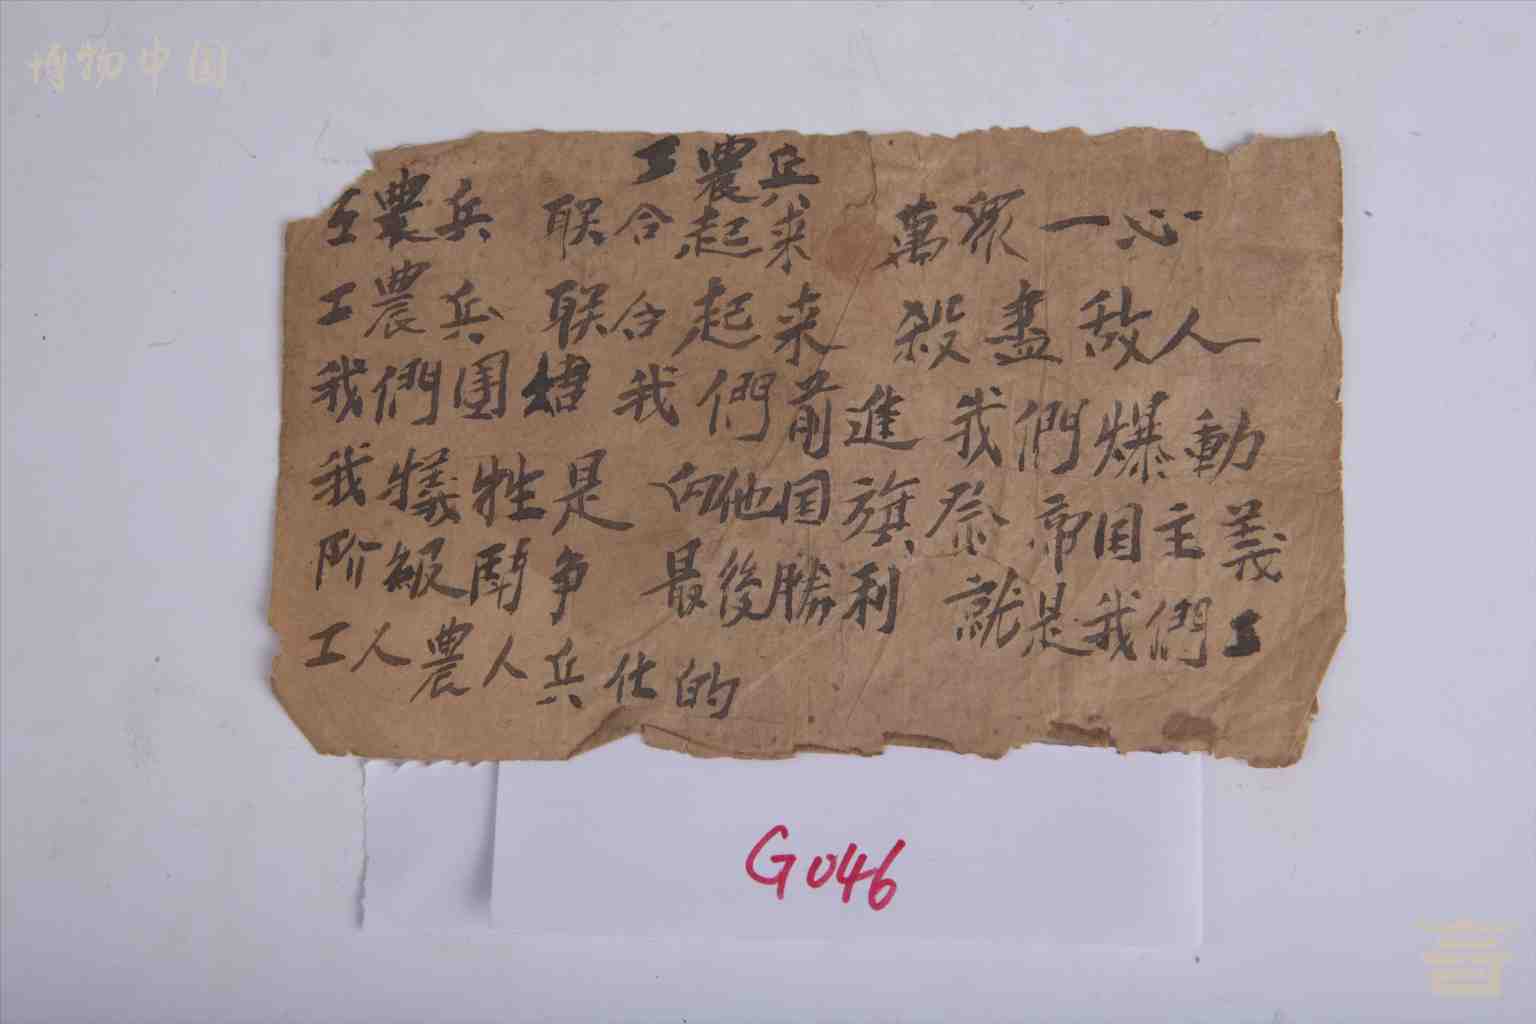 博物中国
工農兵
工農兵 联合起来 萬眾一心
工農兵 联合起来 殺盡敌人
我們团结 我們前進 我們爆動
我犠牲是 向他国旗 祭 帝国主義
阶級鬥争 最後勝利 就是我們工
工人農人兵仕的
G046